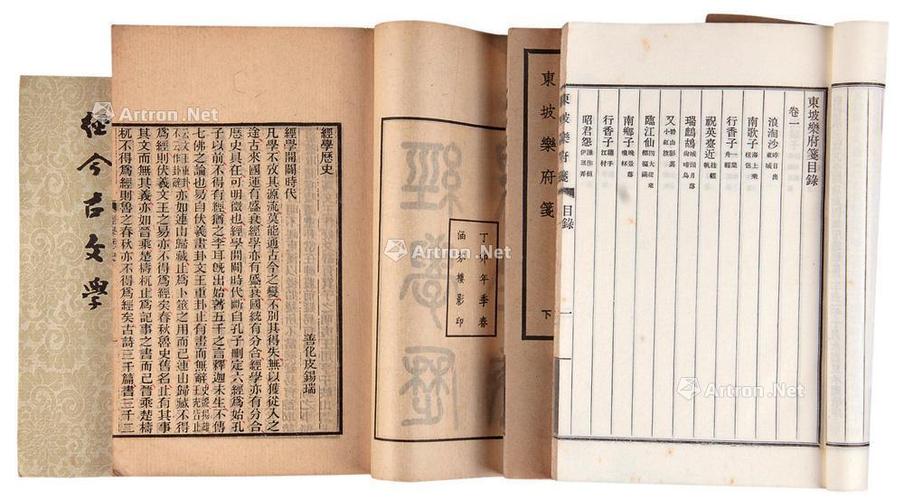 經今古文學
經學歷史
善化皮錫瑞
經學開闢時代
凡學不攷其源流莫能通古今之變不別其得失無以獲從入之
途古來國運有盛衰經學亦有盛衰國統有分合經學亦有分合
歷史具在可明徵也經學開闢時代斷自孔子刪定六經爲始孔
子以前不得有經猶之李耳既出始著五千之言釋迦未生不傳
七佛之論也易自伏羲畫卦文王重卦止有畫而無辭
亦如連山歸藏止爲卜筮之用而已連山歸藏不得
爲經則伏羲文王之易亦不得爲經矣春秋魯史舊名止有其事
其文而無其義亦如晉乘楚檮杌止爲記事之書而已晉乘楚檮
杌不得爲經則魯之春秋亦不得爲經矣古詩三千篇書三千三
丁卯年季春
涵芬樓影印
經學歷
東坡樂府箋
下
東坡樂府箋目錄
卷一
浪淘沙
南歌子
行香子
祝英臺近
瑞鷓鴣
又
臨江仙
南鄉子
行香子
昭君怨
東坡樂府箋
目錄
一
Artron.Net
Artron.Net
Artron.Net
Artron.Net